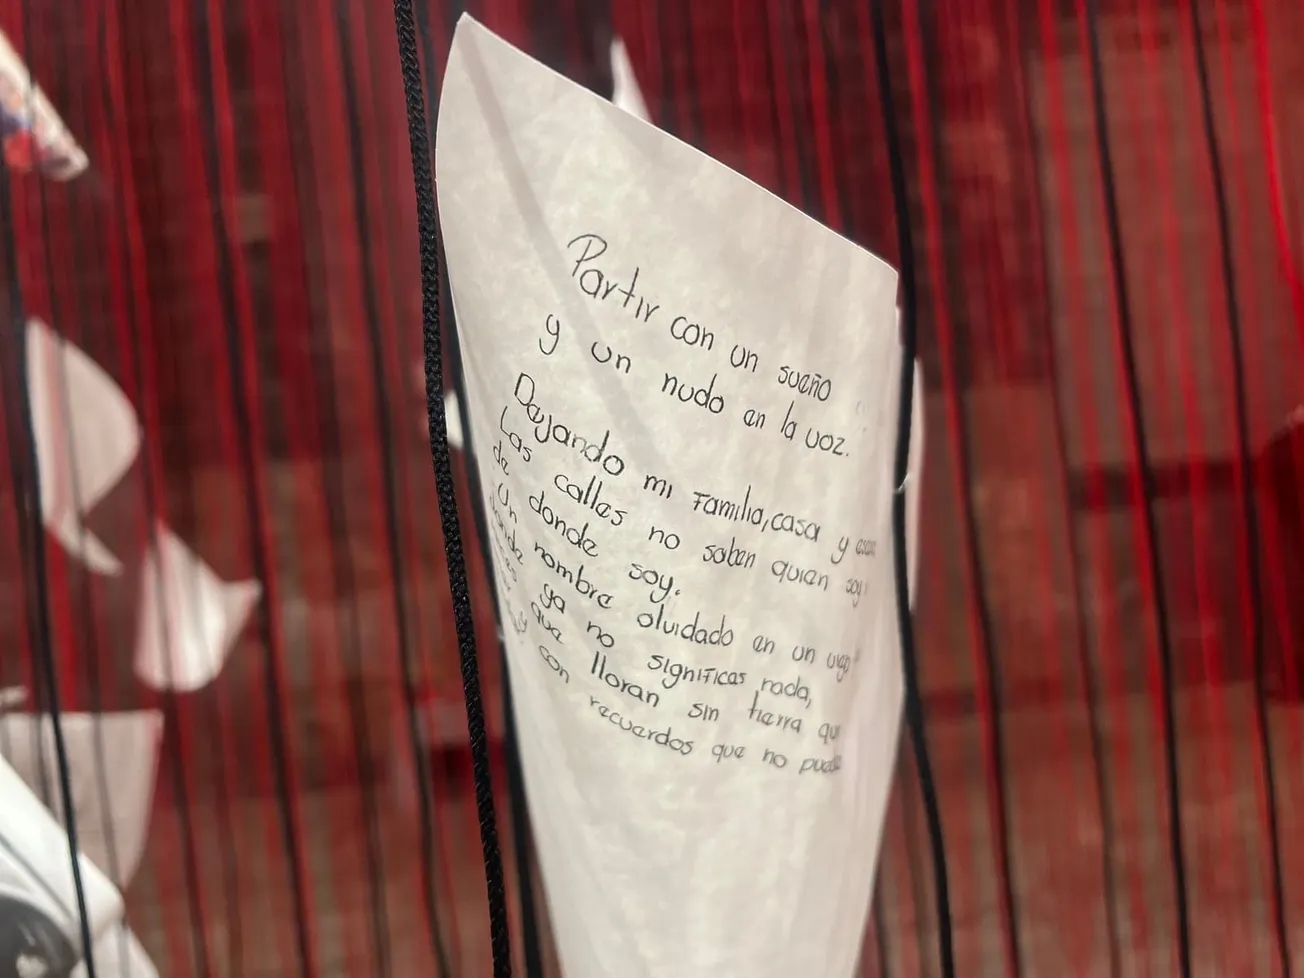 Partir con un sueño
y un nudo en la voz.
Dejando mi familia, casa y
Las calles no saben quien soy
de donde soy.
Un nombre olvidado en un
donde ya no significas nada,
que lloran sin tierra
y con recuerdos que no